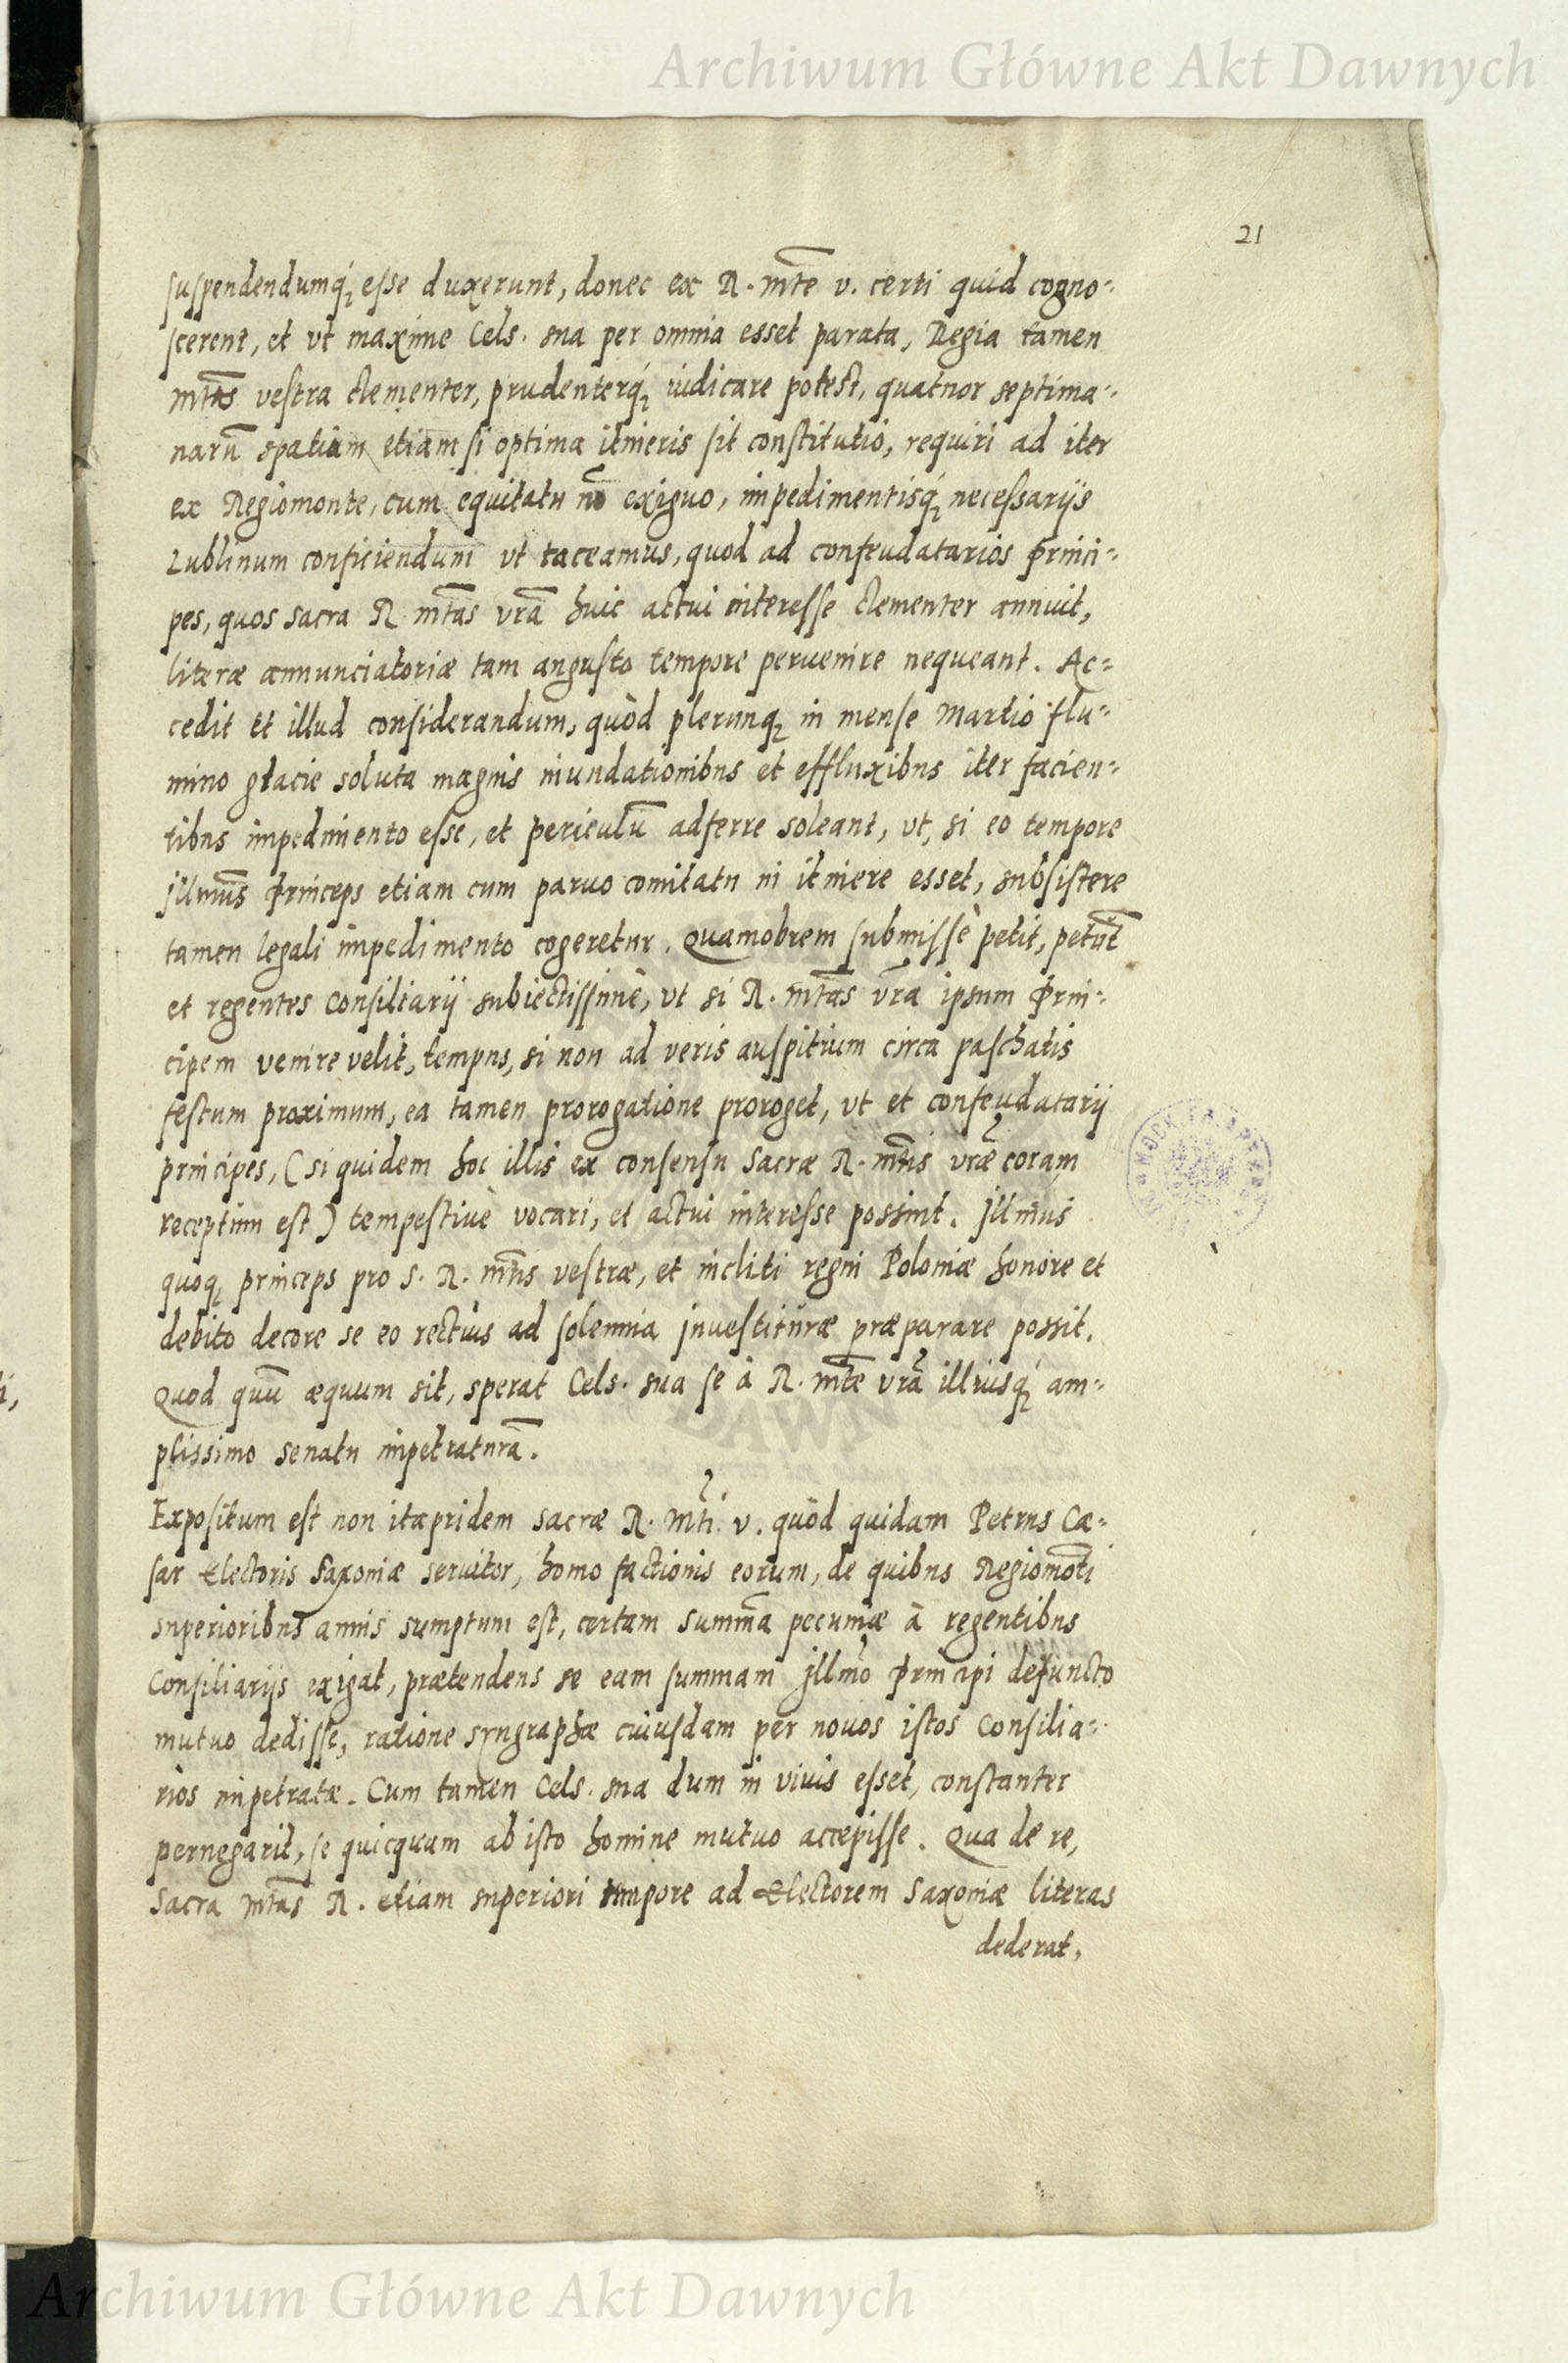 Archiwum Główne Akt Dawnych
21
suspendendumq́ꝫ esse duxerunt, donec ex R. mt̄e v. certi quid cogno-
scerent, et vt maxime Cels. sua per omnia esset parata, Regia tamen
mt̄as vestra clementer, prudenterq́ꝫ iudicare potest, quatuor septima-
narū spatium etiam si optima itineris sit constitutio, requiri ad iter
ex Regiomonte, cum equitatu nō exiguo, impedimentisq́ꝫ necessarijs
Lublinum conficiendum vt taceamus, quod ad confeudatarios Princi-
pes, quos sacra R. mt̄as vrā huic actui interesse clementer annuit,
literæ annunciatoriæ tam angusto tempore peruenire nequeant. Ac-
cedit et illud considerandum, quòd plerunqꝫ in mense Martio flu-
mino glacie soluta magnis inundationibus et effluxibus iter facien-
tibus impedimento esse, et periculū adferre soleant, vt, si eo tempore
Jllmus̄ Princeps etiam cum paruo comitatu in itinere esset, subsistere
tamen legali impedimento cogeretur. Quamobrem submissè petit, petūt
et regentes Consiliarij subiectissimè, vt si R. mt̄as vrā ipsum Prin-
cipem venire velit, tempus, si non ad veris auspitium circa paschatis
festum proximum, ea tamen prorogatione proroget, vt et confeudatarij
principes, (siquidem hoc illis ex consensu Sacræ R. mt̄is vrǣ coram
receptum est) tempestiuè vocari, et actui interesse possint. Jllmūs
quoqꝫ princeps pro S. R. mt̄is vestræ, et incliti regni Poloniæ honore et
debito decore se eo rectius ad solemnia jnuestituræ præparare possit.
Quod quū æquum sit, sperat Cels. sua se à R. mt̄e vrā illiusq́ꝫ am-
plissimo senatu impetraturā.
Expositum est non itapridem Sacræ R. Mt̄i. v. quòd quidam Petrus Cæ-
sar Electoris Saxoniæ seruitor, homo factionis eorum, de quibus Regiomōti
superioribus annis sumptum est, certam Summā pecuniæ à regentibus
Consiliarijs exigat, prætendens se eam summam Jllmō Principi defuncto
mutuo dedisse, ratione syngraphæ cuiusdam per nouos istos Consilia-
rios impetratæ. Cum tamen Cels. sua dum in viuis esset, constanter
pernegarit, se quicquam ab isto homine mutuo accepisse. Qua de re,
Sacra mt̄as R. etiam superiori tempore ad Electorem Saxoniæ literas
dederat,
Archiwum Główne Akt Dawnych